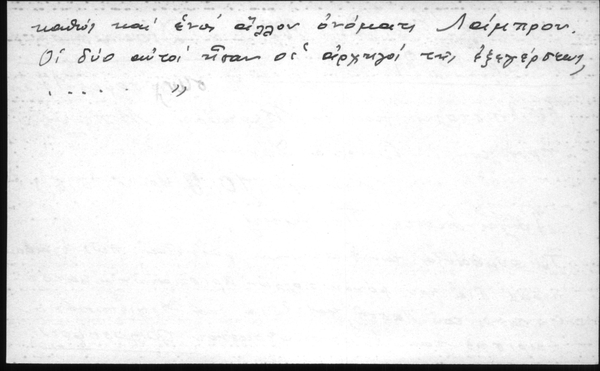 καθώς καί ἑνός ἄλλου ὀνόματι Λάμπρου.
Οἱ δύο αὐτοί ἦσαν οἱ ἀρχηγοί τῆς ἐξεγέρσεως,
. . . . . . "